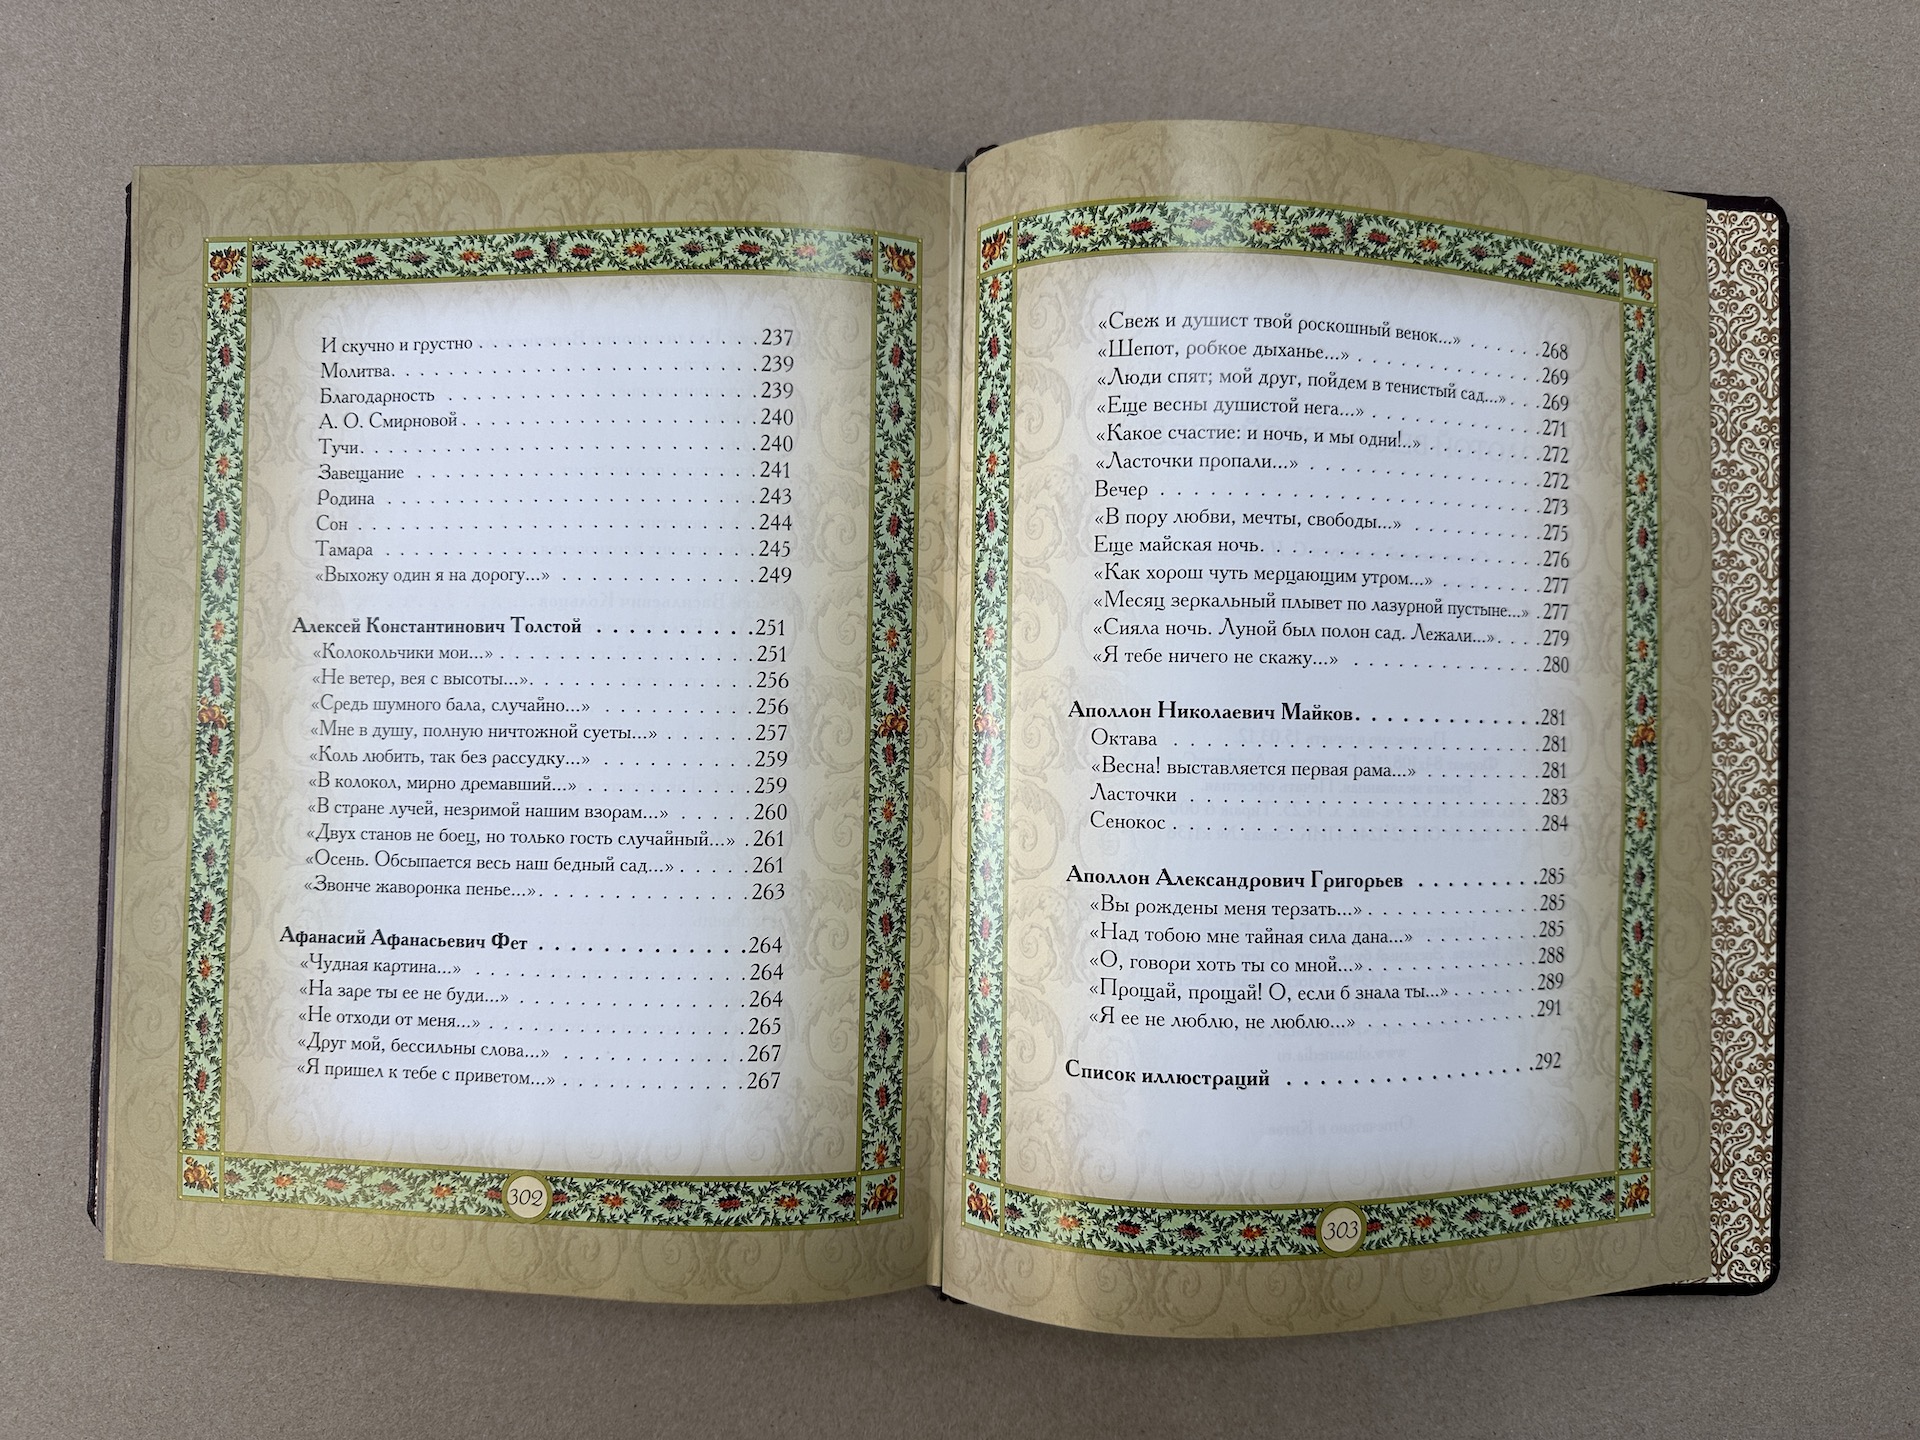 И скучно и грустно . . . . . . . . . . . . . . . . . . . . 237
Молитва. . . . . . . . . . . . . . . . . . . . . . . . . . 239
Благодарность . . . . . . . . . . . . . . . . . . . . . . 239
А. О. Смирновой . . . . . . . . . . . . . . . . . . . . . 240
Тучи. . . . . . . . . . . . . . . . . . . . . . . . . . . . 240
Завещание . . . . . . . . . . . . . . . . . . . . . . . . 241
Родина . . . . . . . . . . . . . . . . . . . . . . . . . . 243
Сон . . . . . . . . . . . . . . . . . . . . . . . . . . . . 244
Тамара . . . . . . . . . . . . . . . . . . . . . . . . . . 245
«Выхожу один я на дорогу...» . . . . . . . . . . . . . . 249
Алексей Константинович Толстой . . . . . . . . . . 251
«Колокольчики мои...» . . . . . . . . . . . . . . . . . . 251
«Не ветер, вея с высоты...». . . . . . . . . . . . . . . . 256
«Средь шумного бала, случайно...» . . . . . . . . . . . 256
«Мне в душу, полную ничтожной суеты...» . . . . . . . 257
«Коль любить, так без рассудку...» . . . . . . . . . . . 259
«В колокол, мирно дремавший...» . . . . . . . . . . . . 259
«В стране лучей, незримой нашим взорам...» . . . . . . 260
«Двух станов не боец, но только гость случайный...» . 261
«Осень. Обсыпается весь наш бедный сад...» . . . . . . 261
«Звонче жаворонка пенье...». . . . . . . . . . . . . . . 263
Афанасий Афанасьевич Фет . . . . . . . . . . . . . 264
«Чудная картина...» . . . . . . . . . . . . . . . . . . . 264
«На заре ты ее не буди...» . . . . . . . . . . . . . . . . 264
«Не отходи от меня...» . . . . . . . . . . . . . . . . . . 265
«Друг мой, бессильны слова...» . . . . . . . . . . . . . 267
«Я пришел к тебе с приветом...» . . . . . . . . . . . . . 267
302
«Свеж и душист твой роскошный венок...» . . . . . . 268
«Шепот, робкое дыханье...» . . . . . . . . . . . . . . 269
«Люди спят; мой друг, пойдем в тенистый сад...» . . . 269
«Еще весны душистой нега...» . . . . . . . . . . . . . 271
«Какое счастие: и ночь, и мы одни!..» . . . . . . . . . 272
«Ласточки пропали...» . . . . . . . . . . . . . . . . . 272
Вечер . . . . . . . . . . . . . . . . . . . . . . . . . . 273
«В пору любви, мечты, свободы...» . . . . . . . . . . 275
Еще майская ночь. . . . . . . . . . . . . . . . . . . . 276
«Как хорош чуть мерцающим утром...» . . . . . . . . 277
«Месяц зеркальный плывет по лазурной пустыне...» . 277
«Сияла ночь. Луной был полон сад. Лежали...». . . . 279
«Я тебе ничего не скажу...» . . . . . . . . . . . . . . 280
Аполлон Николаевич Майков. . . . . . . . . . . . . 281
Октава . . . . . . . . . . . . . . . . . . . . . . . . . 281
«Весна! выставляется первая рама...» . . . . . . . . . 281
Ласточки . . . . . . . . . . . . . . . . . . . . . . . . 283
Сенокос . . . . . . . . . . . . . . . . . . . . . . . . . 284
Аполлон Александрович Григорьев . . . . . . . . . 285
«Вы рождены меня терзать...» . . . . . . . . . . . . . 285
«Над тобою мне тайная сила дана...» . . . . . . . . . 285
«О, говори хоть ты со мной...» . . . . . . . . . . . . . 288
«Прощай, прощай! О, если б знала ты...» . . . . . . . 289
«Я ее не люблю, не люблю...» . . . . . . . . . . . . . 291
Список иллюстраций . . . . . . . . . . . . . . . . . 292
303